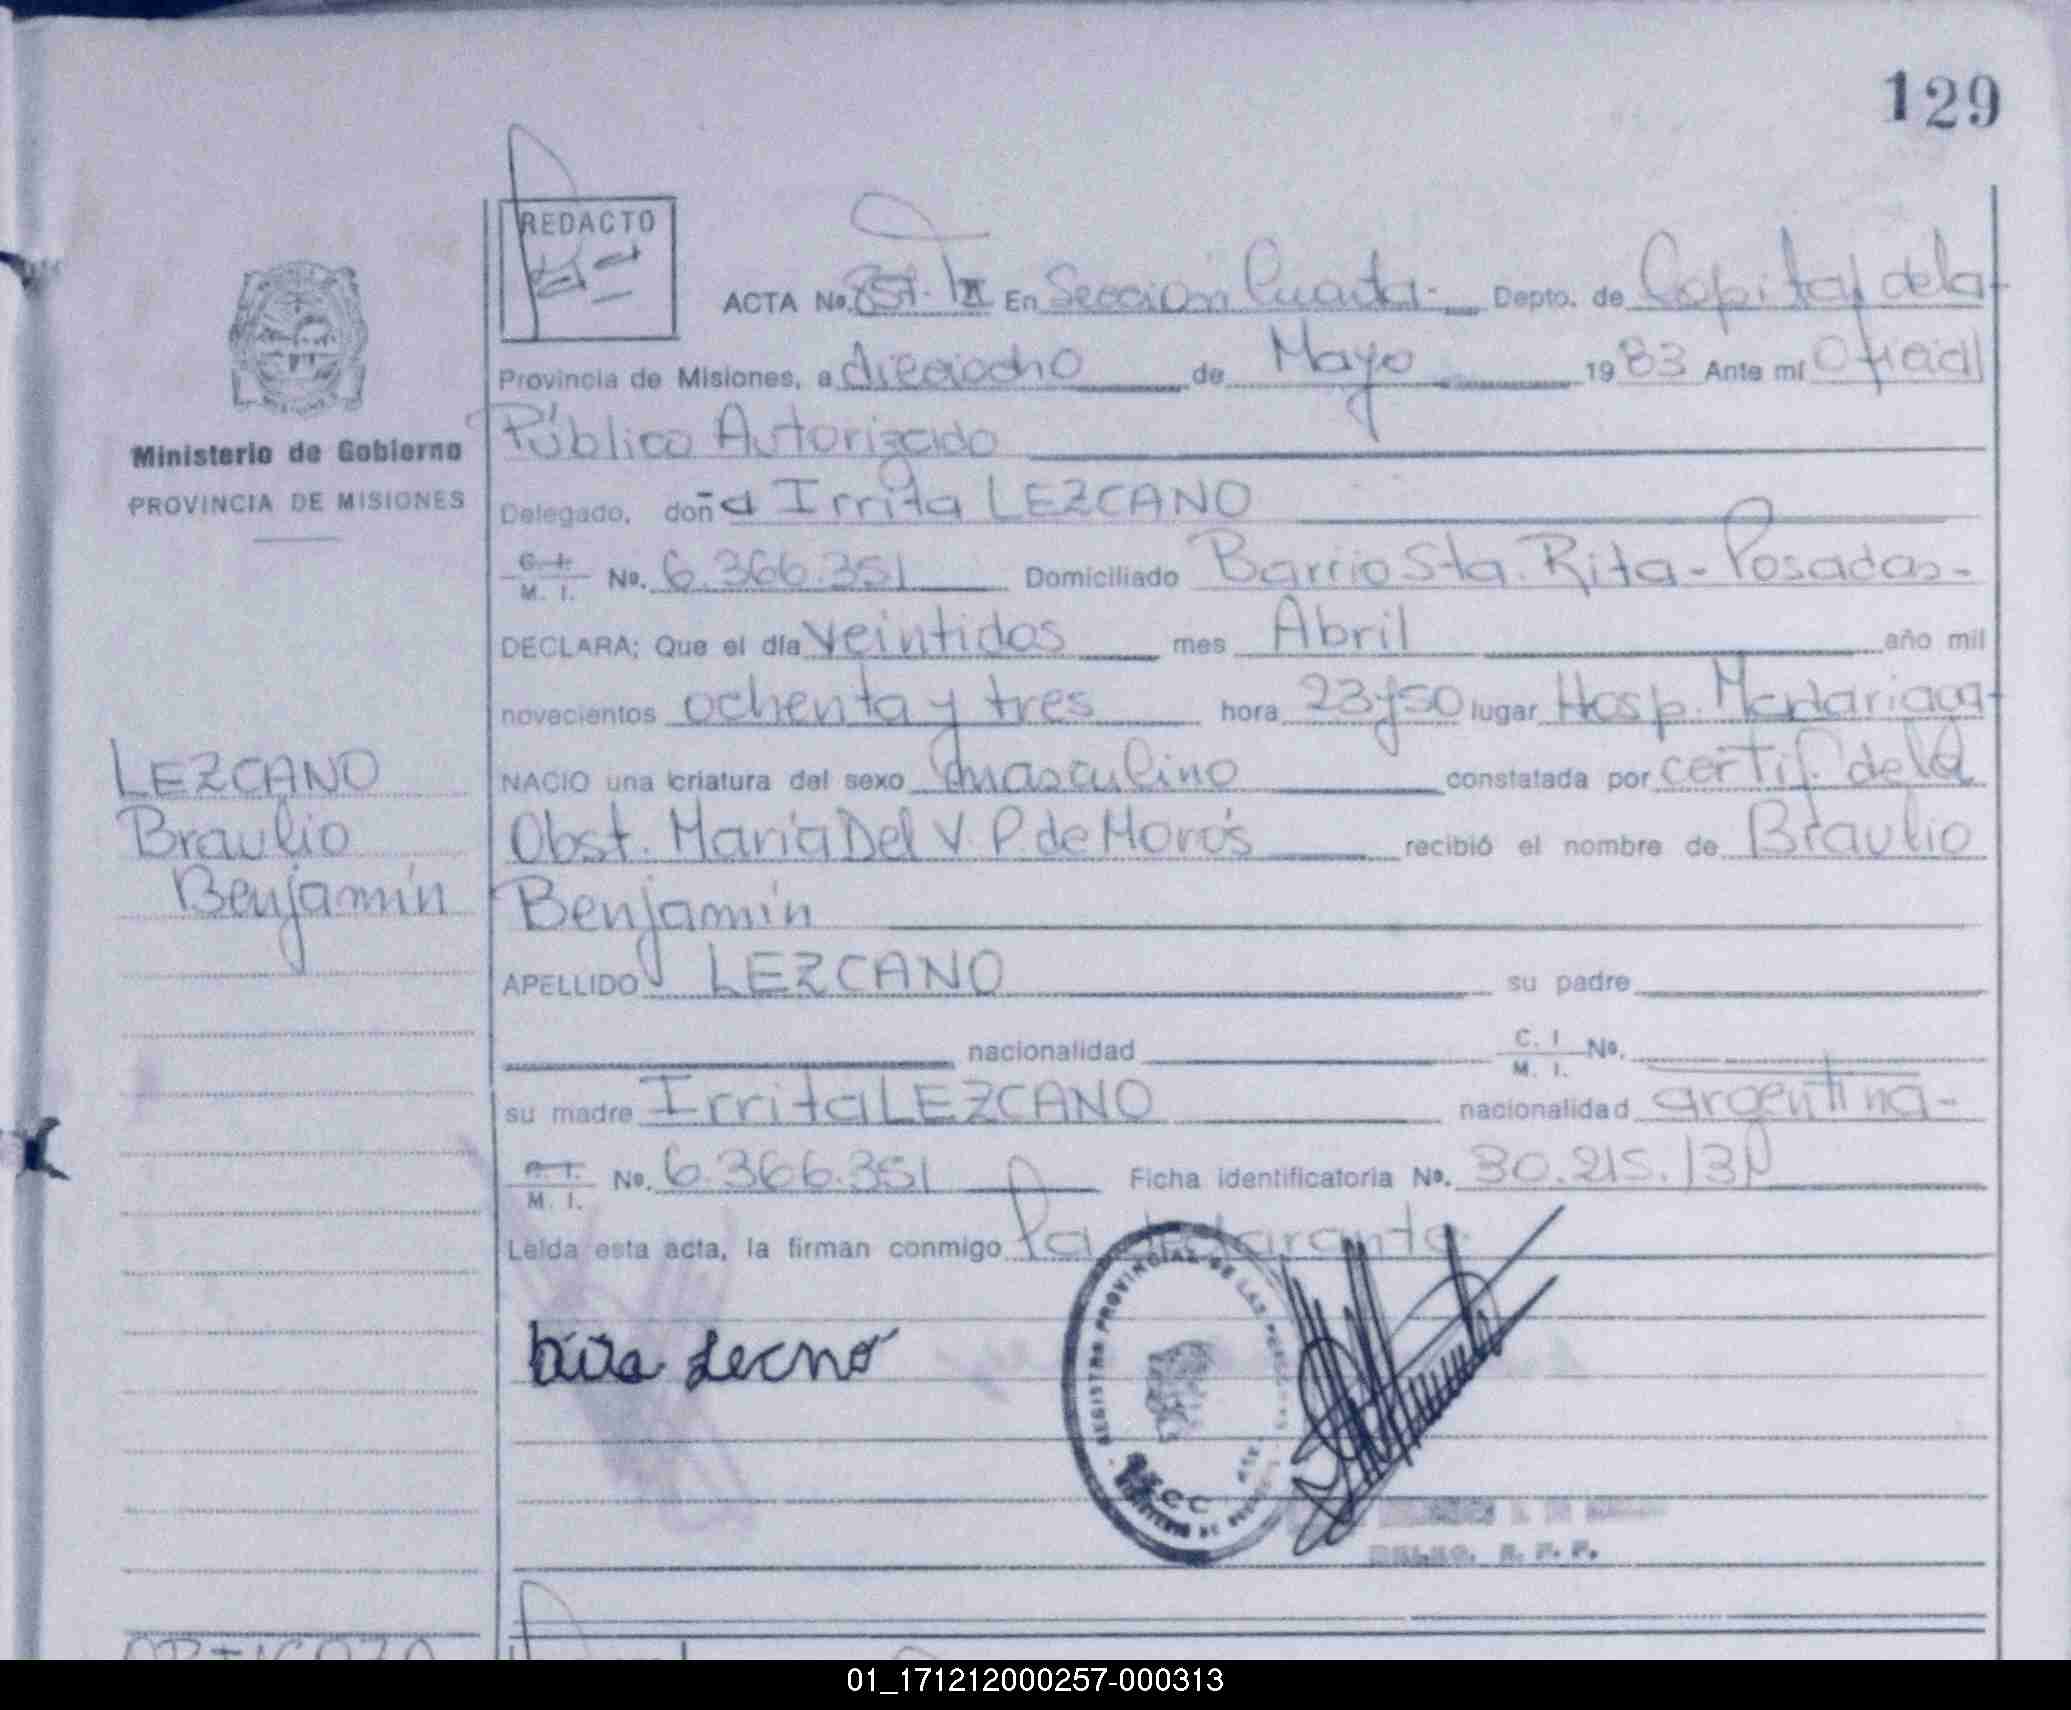 129
REDACTO
ACTA No. En Sección Cuarta.- Depto. de Capital de la
Provincia de Misiones, a dieciocho de Mayo 1983 Ante mí Oficial
Público Autorizado
Delegado, doña Irrita LEZCANO
C. I. M. I. No. 6.366.351 Domiciliado Barrio Sta. Rita - Posadas -
DECLARA; Que el día veintidos mes Abril año mil
novecientos ochenta y tres hora 23y50 lugar Hosp. Madariaga
NACIO una criatura del sexo masculino constatada por certif. de la
Obst. María Del V. P. de Morós recibió el nombre de Braulio
Benjamín
APELLIDO LEZCANO su padre
nacionalidad C. I. M. I. No.
su madre Irrita LEZCANO nacionalidad argentina -
M. I. No. 6.366.351 Ficha identificatoria No. 30.215.131
Leída esta acta, la firman conmigo la declarante
Ministerio de Gobierno
PROVINCIA DE MISIONES
LEZCANO
Braulio
Benjamín
REGISTRO PROVINCIAL DE LAS
01_171212000257-000313